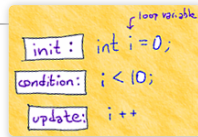 loop variable
init : int i = 0;
condition: i < 10;
update: i ++